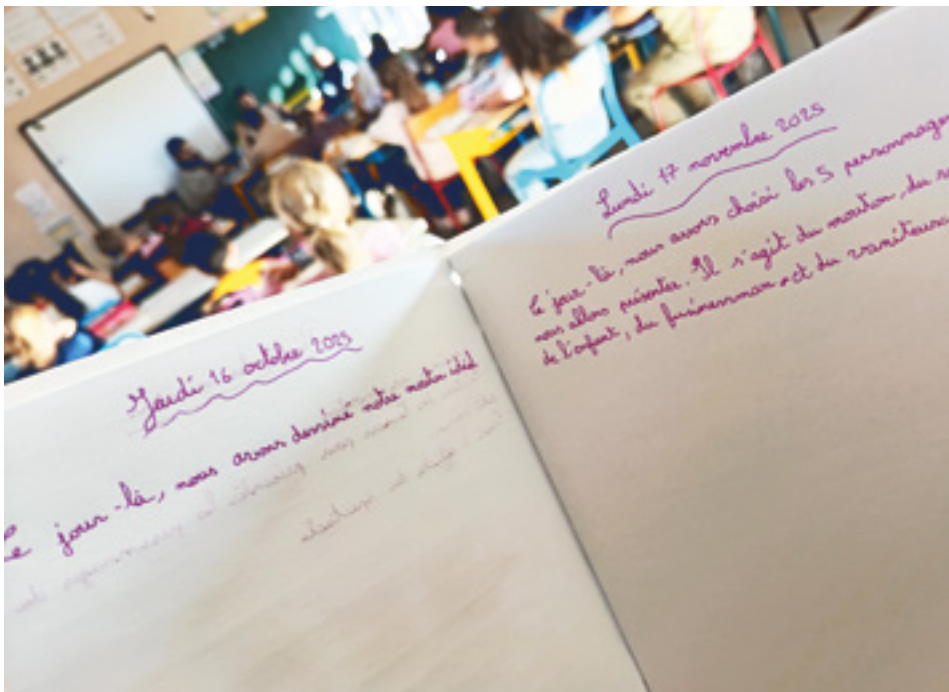 Jeudi 16 octobre 2025
Ce jour-là, nous avons dessiné notre matin idéal
Lundi 17 novembre 2025
Ce jour-là, nous avons choisi les 5 personnages
nous allons présenter. Il s'agit du mouton, du
de l'enfant, du businessman et du vaniteux